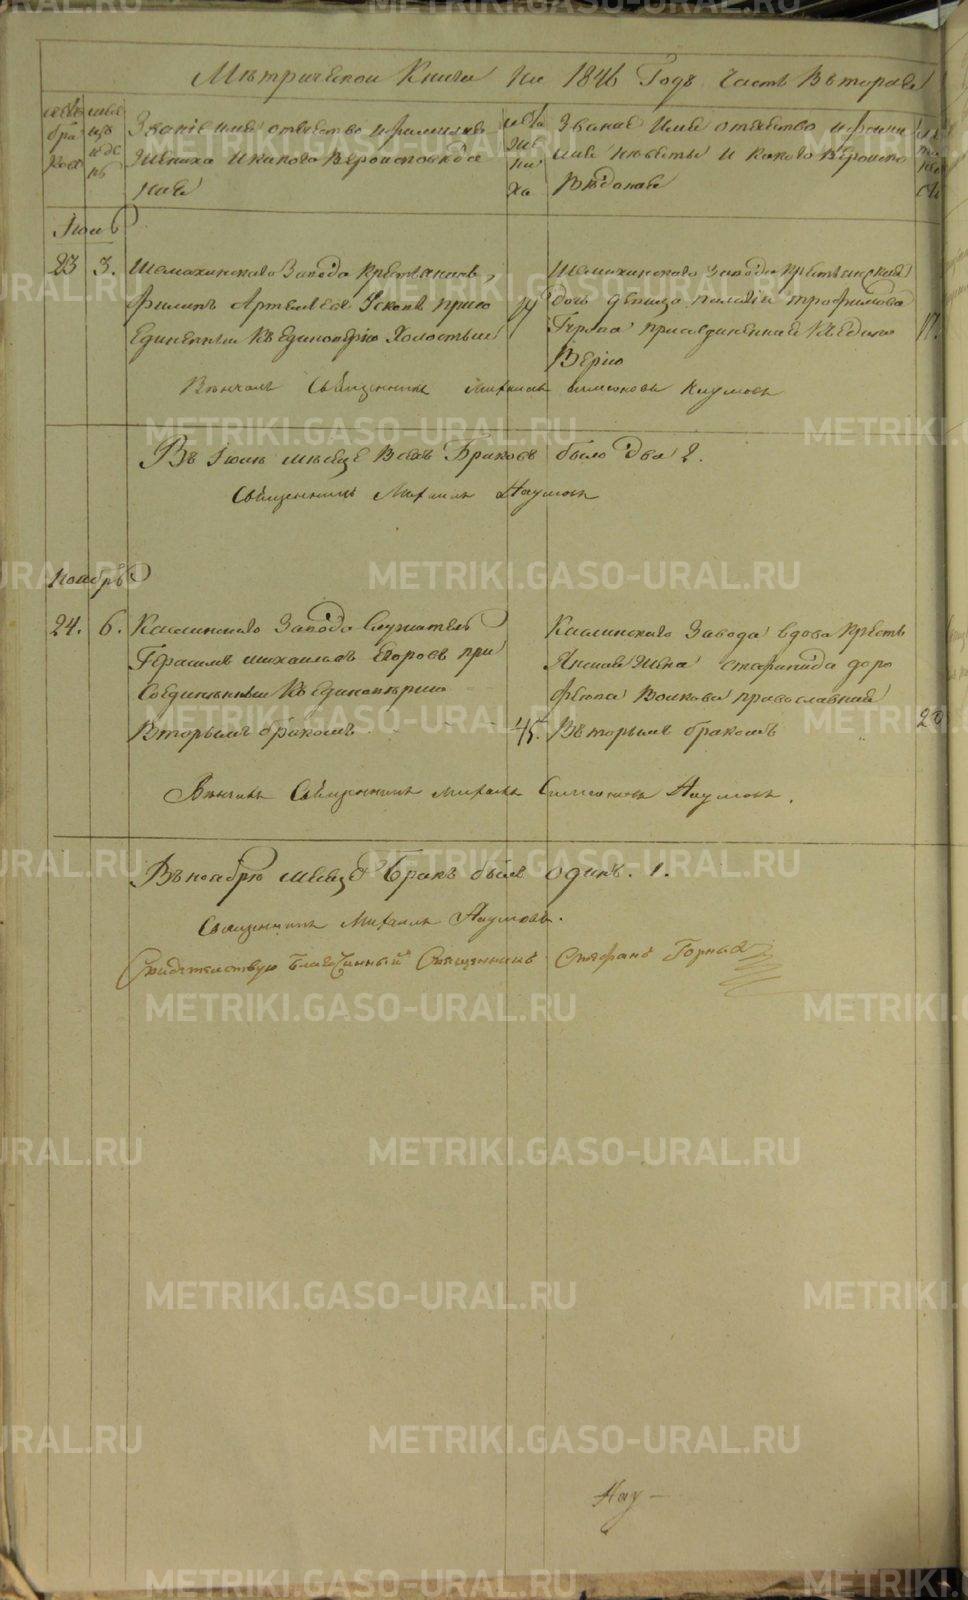 Метрической Книги на 1846 Годъ Часть Вторая
Званіе имя отчество и фамилия
жениха и какого вероисповеда
ния
лѣта
же
ни
ха
Звание Имя отчество и фами
лия невесты и какого вероиспо
ведания
Июль
23 3. Шемахинскаго Завода крестьянинъ
Филипъ Артемьевъ присо
единенный къ единоверию Холостый
Шемахинскаго Завода крестьянская
дочь девица Трофимова
присоединенная къ едино
верию
17.
Венчалъ Священникъ Михаилъ Симеоновъ Наумовъ
Въ Июле месяце всехъ Браковъ было два 2.
Священникъ Михаилъ Наумовъ
Ноябрь
24. 6. Каслинскаго Завода Служитель
Герасимъ Михайловъ Егоровъ при
соединенный къ единоверию
Вторымъ бракомъ 45.
Каслинскаго Завода вдова кресть
янская жена доро
феева Волкова православная
Вторымъ бракомъ
Венчалъ Священникъ Михаилъ Симеоновъ Наумовъ.
Въ ноябре месяце Бракъ былъ одинъ. 1.
Священникъ Михаилъ Наумовъ.
Свидетельствую Благочинный Священникъ Стефанъ
Нау-
METRIKI.GASO-URAL.RU